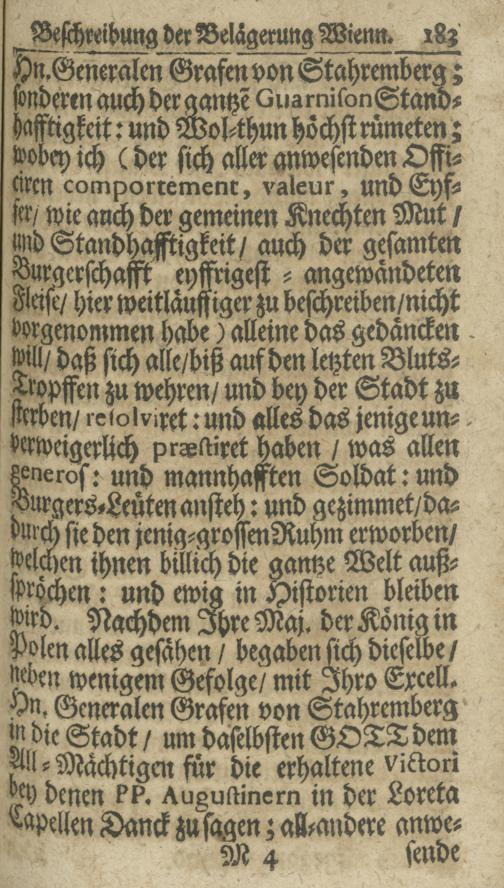 Beschreibung der Belägerung Wienn. 183
Hn. Generalen Grafen von Stahremberg;
sonderen auch der gantzē Guarnison Stand-
hafftigkeit: und Wol-thun höchst rümeten;
wobey ich (der sich aller anwesenden Offi-
ciren comportement, valeur, und Eyf-
fer/ wie auch der gemeinen Knechten Mut /
und Standhafftigkeit/ auch der gesamten
Burgerschafft eyffrigest - angewändeten
Fleise/ hier weitläuffiger zu beschreiben/nicht
vorgenommen habe) alleine das gedäncken
will/ daß sich alle/biß auf den letzten Bluts-
Tropffen zu wehren/ und bey der Stadt zu
sterben/ resolviret: und alles das jenige un-
verweigerlich præstiret haben / was allen
generos: und mannhafften Soldat: und
Burgers-Leüten ansteh: und gezimmet/da-
durch sie den jenig-grossen Ruhm erworben/
welchen ihnen billich die gantze Welt auß-
spröchen: und ewig in Historien bleiben
wird. Nachdem Ihre Maj. der König in
Polen alles gesähen / begaben sich dieselbe /
neben wenigem Gefolge/ mit Ihro Excell.
Hn. Generalen Grafen von Stahremberg
in die Stadt / um daselbsten GOTT dem
All-Mächtigen für die erhaltene Victori
bey denen PP. Augustinern in der Loreta
Capellen Danck zu sagen; all-andere anwe-
M 4 sende